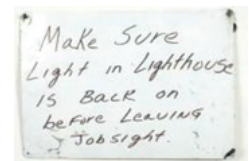 Make Sure
Light in Lighthouse
is Back on
before Leaving
Jobsight.